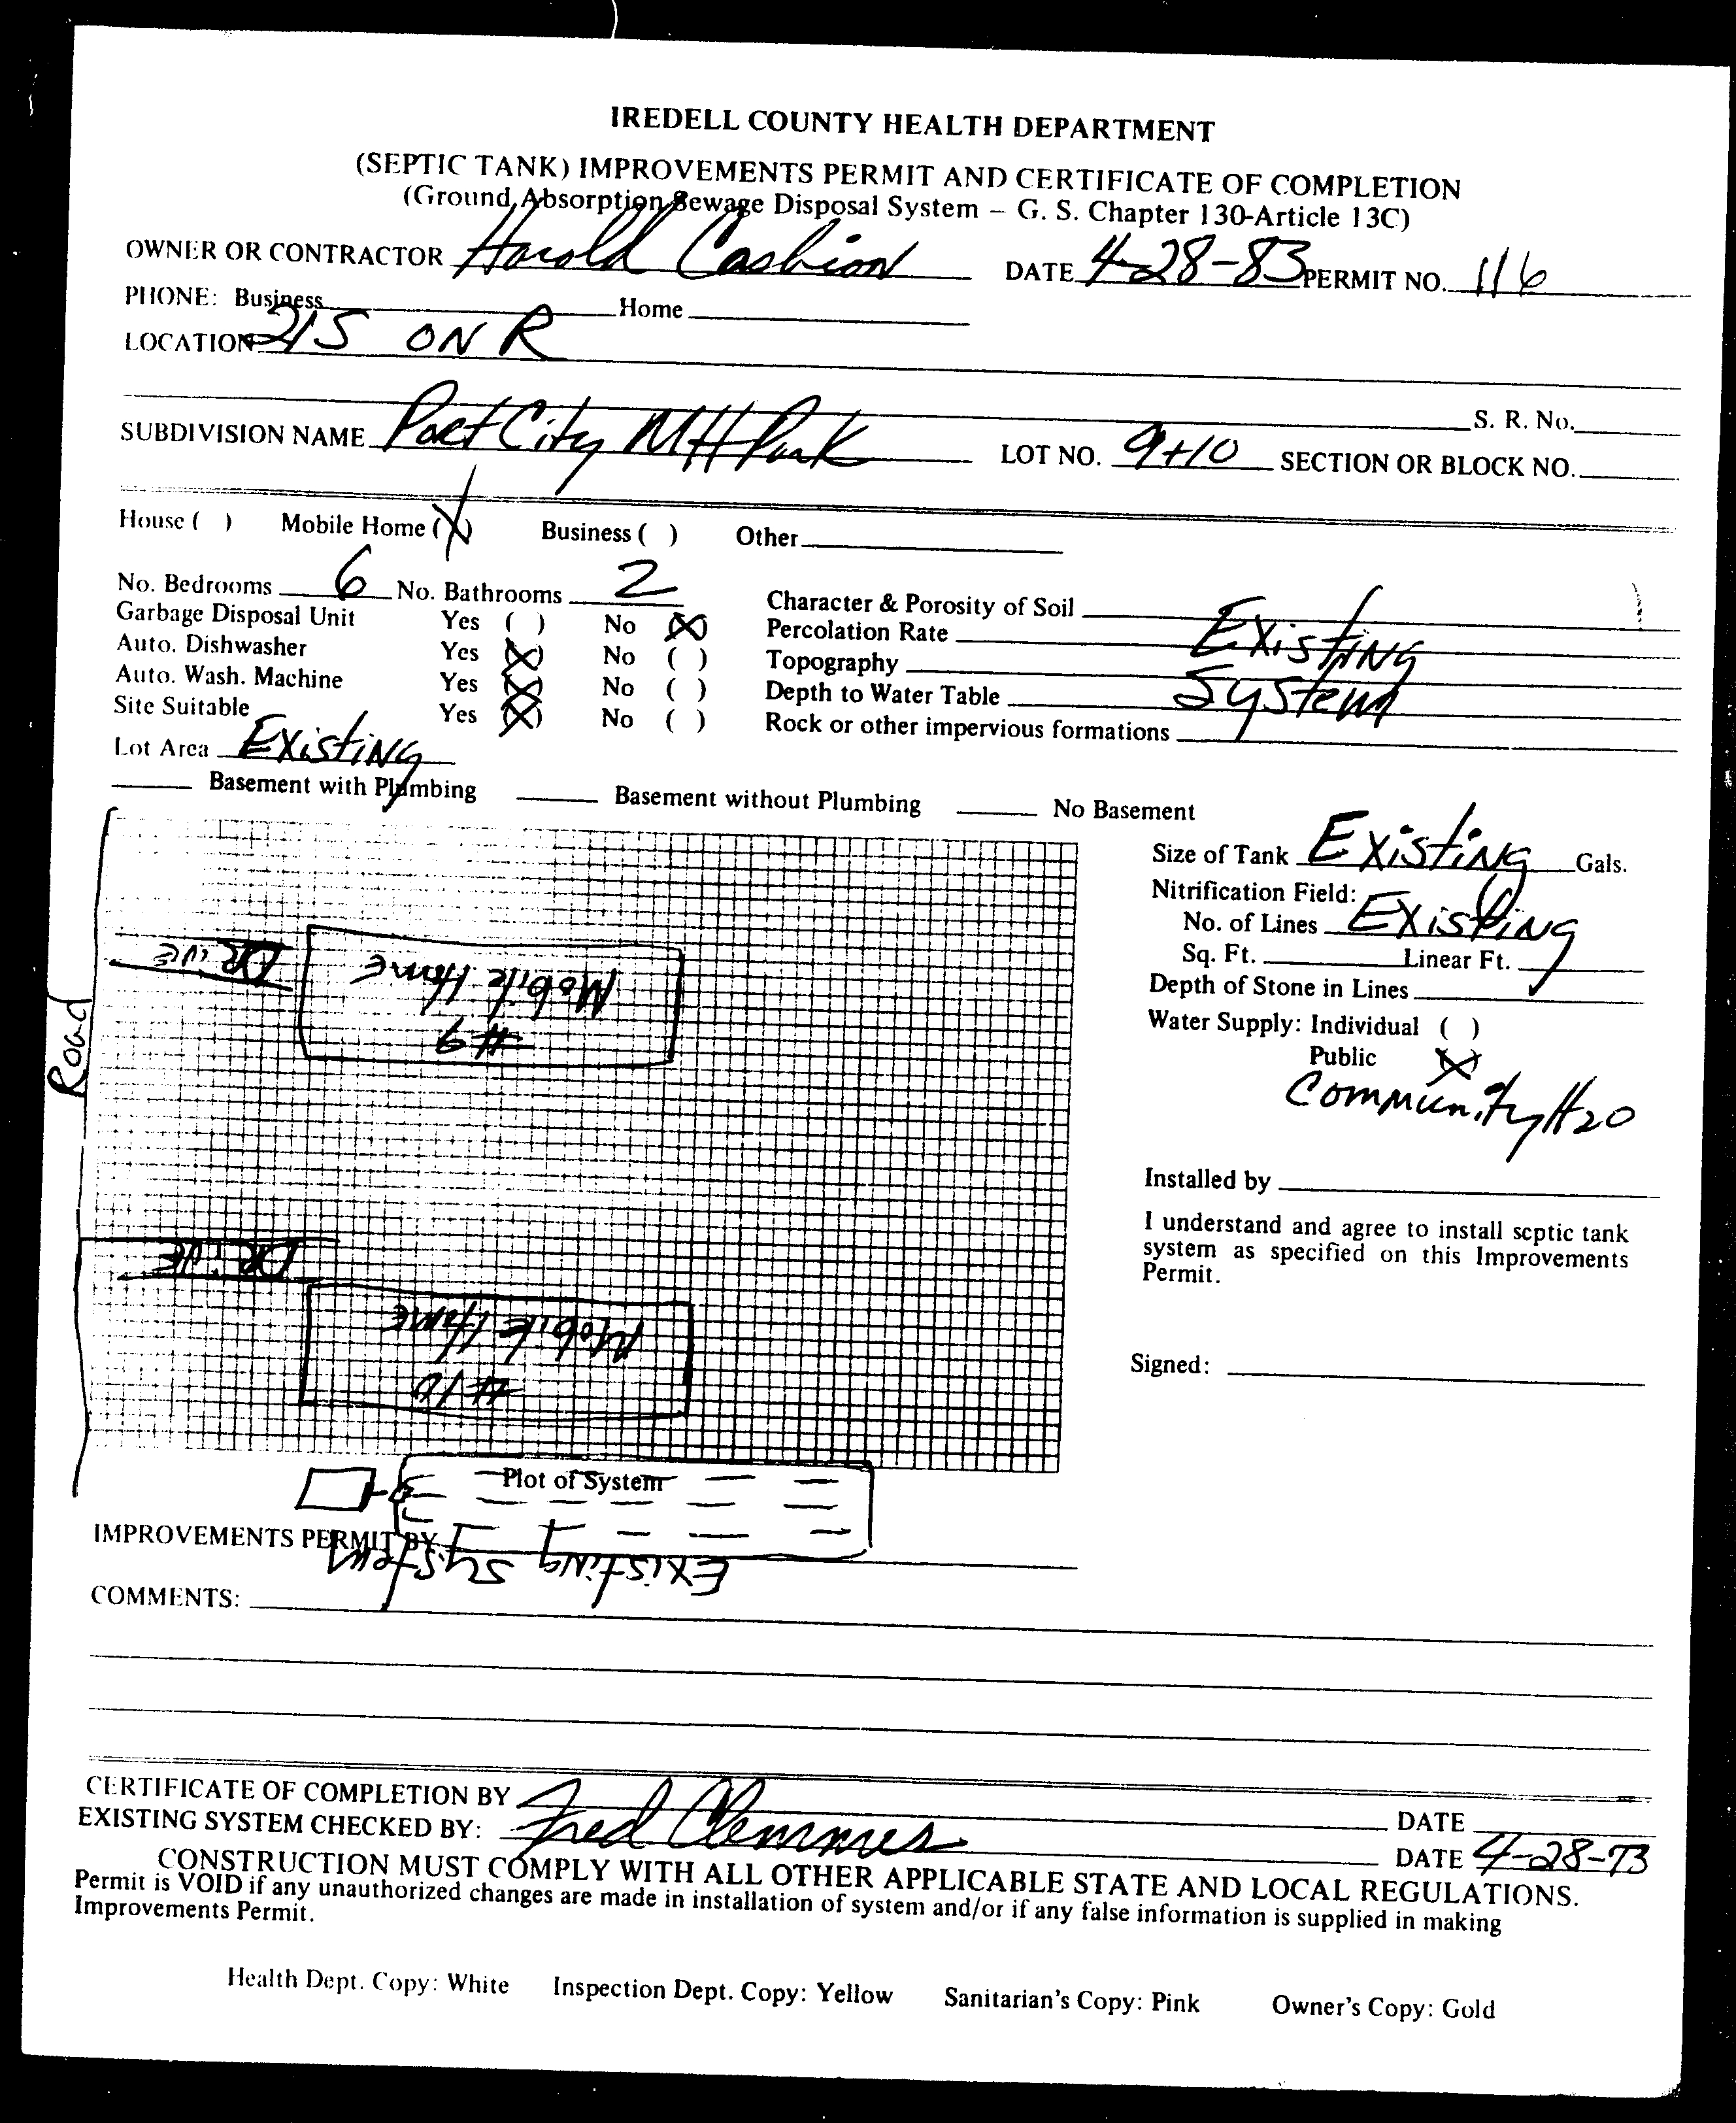 IREDELL COUNTY HEALTH DEPARTMENT
(SEPTIC TANK) IMPROVEMENTS PERMIT AND CERTIFICATE OF COMPLETION
(Ground Absorption Sewage Disposal System – G. S. Chapter 130-Article 13C)
OWNER OR CONTRACTOR Harold Cashion DATE 4-28-83 PERMIT NO. 116
PHONE: Business Home
LOCATION 21S ON R
S. R. No.
SUBDIVISION NAME Poet City MH Park LOT NO. 9+10 SECTION OR BLOCK NO.
House ( ) Mobile Home (X) Business ( ) Other
No. Bedrooms 6 No. Bathrooms 2 Character & Porosity of Soil
Garbage Disposal Unit Yes ( ) No (X) Percolation Rate Existing
Auto. Dishwasher Yes (X) No ( ) Topography
Auto. Wash. Machine Yes (X) No ( ) Depth to Water Table System
Site Suitable Yes (X) No ( ) Rock or other impervious formations
Lot Area Existing
Basement with Plumbing Basement without Plumbing No Basement
Size of Tank Existing Gals.
Nitrification Field:
No. of Lines Existing
Sq. Ft. Linear Ft.
Depth of Stone in Lines
Water Supply: Individual ( )
Public (X)
Community H20
Installed by
I understand and agree to install septic tank
system as specified on this Improvements
Permit.
Signed:
Road
DRivE
Mobile Home
#9
DRivE
Mobile Home
#10
Plot of System
IMPROVEMENTS PERMIT BY
Existing System
COMMENTS:
CERTIFICATE OF COMPLETION BY DATE
EXISTING SYSTEM CHECKED BY: Fred Clemmer DATE 4-28-73
CONSTRUCTION MUST COMPLY WITH ALL OTHER APPLICABLE STATE AND LOCAL REGULATIONS.
Permit is VOID if any unauthorized changes are made in installation of system and/or if any false information is supplied in making
Improvements Permit.
Health Dept. Copy: White Inspection Dept. Copy: Yellow Sanitarian's Copy: Pink Owner's Copy: Gold